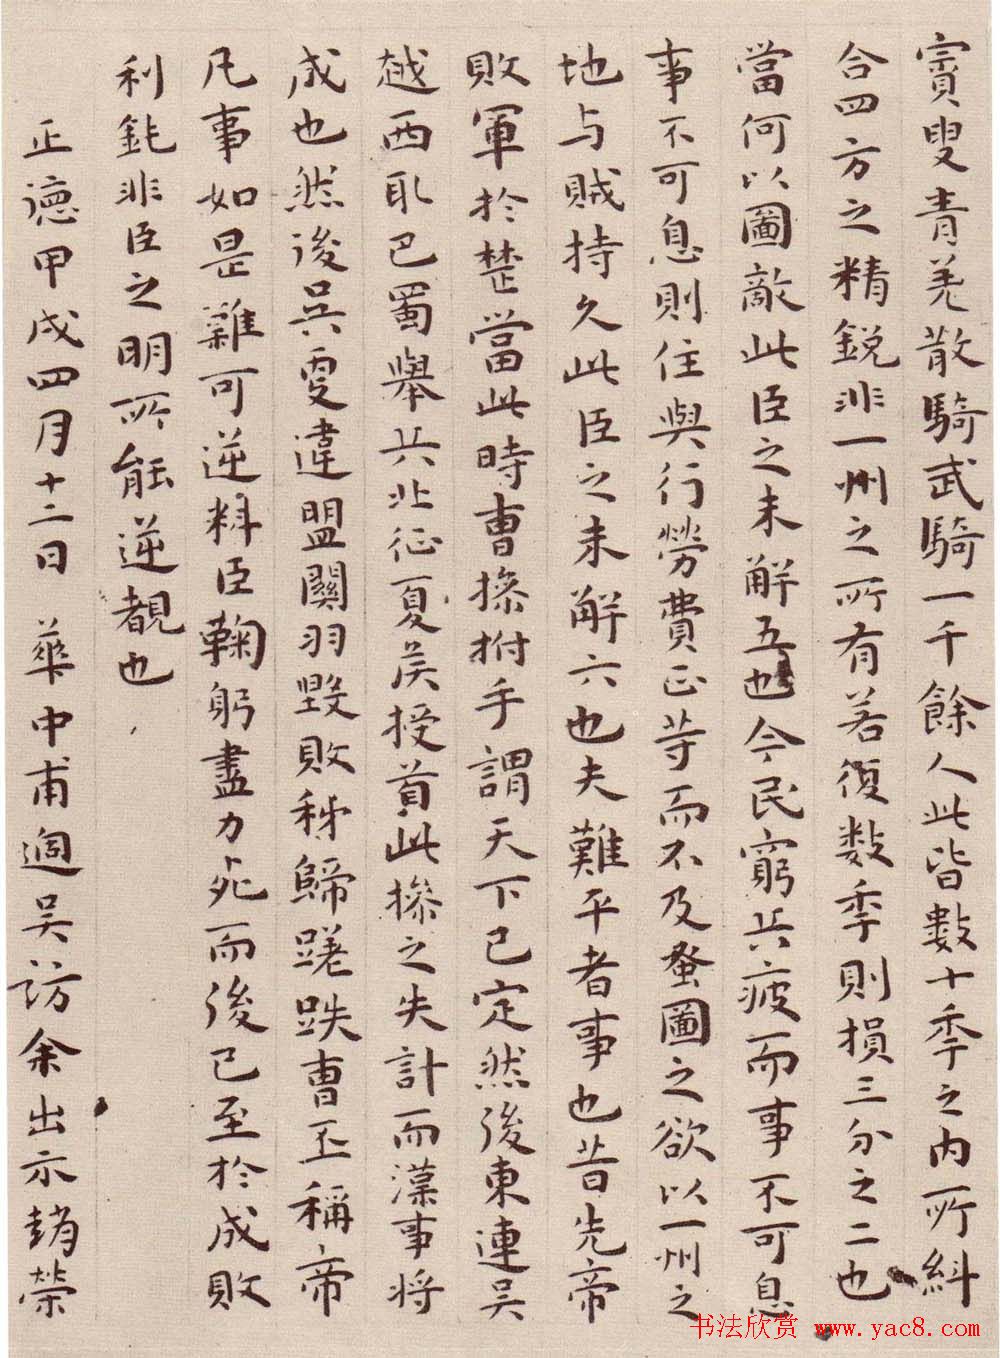 賨叟青羌散騎武騎一千餘人此皆數十季之内所糾
合四方之精鋭非一州之所有若復数季則損三分之二也
當何以圖敵此臣之未解五也今民窮兵疲而事不可息
事不可息則住與行勞費正等而不及蚤圖之欲以一州之
地与賊持久此臣之未解六也夫難平者事也昔先帝
敗軍於楚當此時曹操拊手謂天下已定然後東連吴
越西取巴蜀舉兵北征夏侯授首此操之失計而漢事将
成也然後吴更違盟關羽毀敗秭歸蹉跌曹丕稱帝
凡事如是難可逆料臣鞠躬盡力死而後已至於成敗
利鈍非臣之明所能逆覩也
正德甲戌四月十二日 華中甫過吴訪余出示趙榮
书法欣赏 www.yac8.com